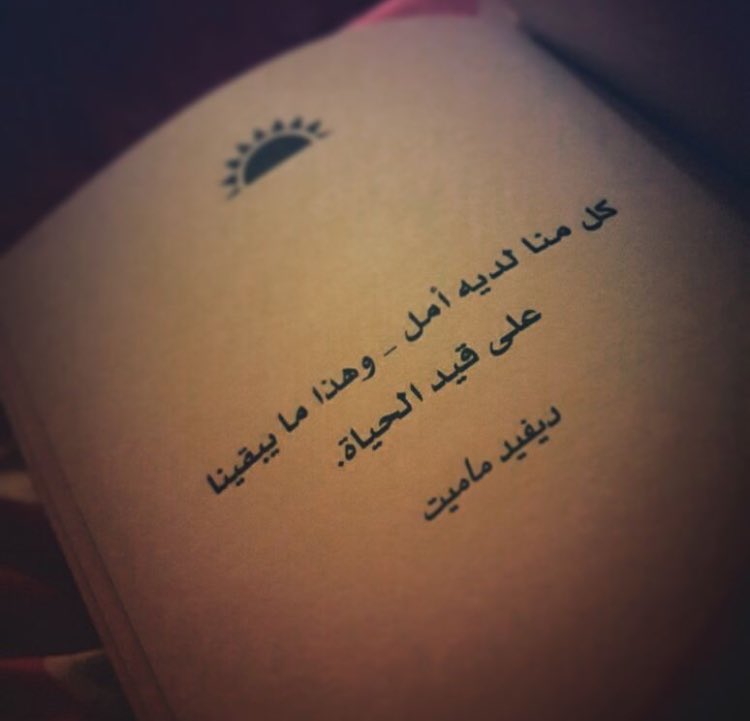 كل منا لديه أمل - وهذا ما يبقينا
على قيد الحياة.
ديفيد ماميت